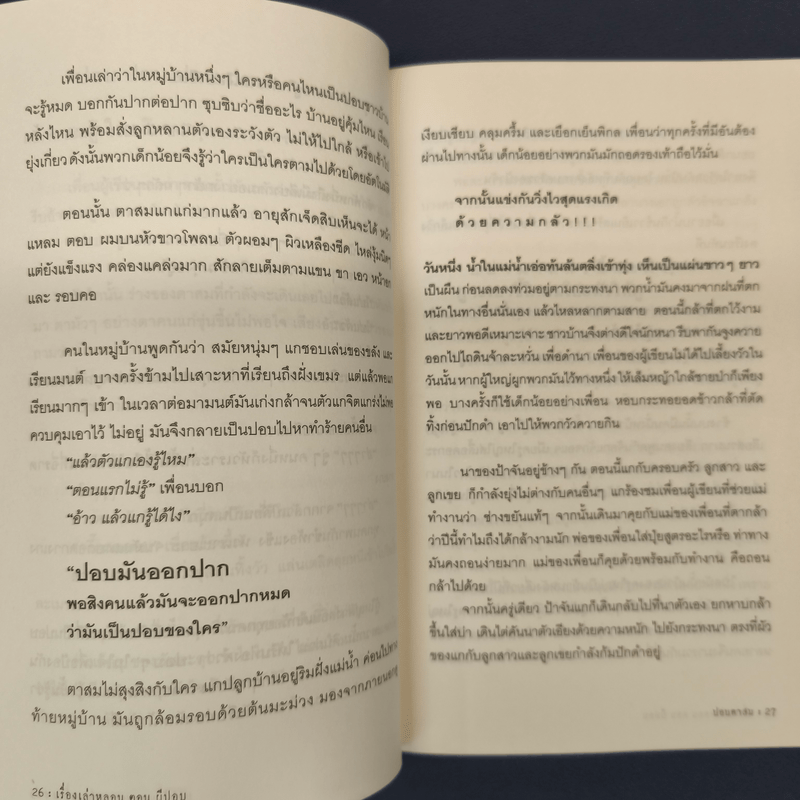 เพื่อนเล่าว่าในหมู่บ้านหนึ่งๆ ใครหรือคนไหนเป็นปอบชาวบ้าน
จะรู้หมด บอกกันปากต่อปาก ซุบซิบว่าชื่ออะไร บ้านอยู่คุ้มไหน เรือน
หลังไหน พร้อมสั่งลูกหลานตัวเองระวังตัว ไม่ให้ไปใกล้ หรือเข้าไป
ยุ่งเกี่ยว ดังนั้นพวกเด็กน้อยจึงรู้ว่าใครเป็นใครตามไปด้วยโดยอัตโนมัติ
ตอนนั้น ตาสมแกแก่มากแล้ว อายุสักเจ็ดสิบเห็นจะได้ หน้า
แหลม ตอบ ผมบนหัวขาวโพลน ตัวผอมๆ ผิวเหลืองซีด ไหล่งุ้มนิดๆ
แต่ยังแข็งแรง คล่องแคล่วมาก สักลายเต็มตามแขน ขา เอว หน้าอก
และ รอบคอ
คนในหมู่บ้านพูดกันว่า สมัยหนุ่มๆ แกชอบเล่นของขลัง และ
เรียนมนต์ บางครั้งข้ามไปเสาะหาที่เรียนถึงฝั่งเขมร แต่แล้วพอแก
เรียนมากๆ เข้า ในเวลาต่อมามนต์มันเก่งกล้าจนตัวแกจิตแกร่งไม่พอ
ควบคุมเอาไว้ ไม่อยู่ มันจึงกลายเป็นปอบไปหาทำร้ายคนอื่น
“แล้วตัวแกเองรู้ไหม”
“ตอนแรกไม่รู้” เพื่อนบอก
“อ้าว แล้วแกรู้ได้ไง”
“ปอบมันออกปาก
พอสิงคนแล้วมันจะออกปากหมด
ว่ามันเป็นปอบของใคร”
ตาสมไม่สุงสิงกับใคร แกปลูกบ้านอยู่ริมฝั่งแม่น้ำ ค่อนไปทาง
ท้ายหมู่บ้าน มันถูกล้อมรอบด้วยต้นมะม่วง มองจากภายนอกดู
26 : เรื่องเล่าหลอน ตอน ผีปอบ
เงียบเชียบ คลุมครึ้ม และเยือกเย็นพิกล เพื่อนว่าทุกครั้งที่มีอันต้อง
ผ่านไปทางนั้น เด็กน้อยอย่างพวกมันมักถอดรองเท้าถือไว้มั่น
จากนั้นแข่งกันวิ่งไวสุดแรงเกิด
ด้วยความกลัว!!!
วันหนึ่ง น้ำในแม่น้ำเอ่อท้นล้นตลิ่งเข้าทุ่ง เห็นเป็นแผ่นขาวๆ ยาว
เป็นผืน ก่อนลดลงท่วมอยู่ตามกระทงนา พวกน้ำมันคงมาจากฝนที่ตก
หนักในทางอื่นนั่นเอง แล้วไหลหลากตามสาย ตอนนี้กล้าที่ตกไว้งาม
และยาวพอดีเหมาะเจาะ ชาวบ้านจึงต่างดีใจนักหนา รีบพากันจูงควาย
ออกไปไถดินจ้าละหวั่น เพื่อดำนา เพื่อนของผู้เขียนไม่ได้ไปเลี้ยงวัวใน
วันนั้น หากผู้ใหญ่ผูกพวกมันไว้ทางหนึ่ง ให้เล็มหญ้าใกล้ชายป่าก็เพียง
พอ บางครั้งก็ใช้เด็กน้อยอย่างเพื่อน หอบกระทอยอดข้าวกล้าที่ตัด
ทิ้งก่อนปักดำ เอาไปให้พวกวัวควายกิน
นาของป้าจันอยู่ข้างๆ กัน ตอนนี้แกกับครอบครัว ลูกสาว และ
ลูกเขย ก็กำลังยุ่งไม่ต่างกับคนอื่นๆ แกร้องชมเพื่อนผู้เขียนที่ช่วยแม่
ทำงานว่า ช่างขยันแท้ๆ จากนั้นเดินมาคุยกับแม่ของเพื่อนที่ตากล้า
ว่าปีนี้ทำไมถึงได้กล้างามนัก พ่อของเพื่อนใส่ปุ๋ยสูตรอะไรหรือ ท่าทาง
มันคงถอนง่ายมาก แม่ของเพื่อนก็คุยด้วยพร้อมกับทำงาน คือถอน
กล้าไปด้วย
จากนั้นครู่เดียว ป้าจันแกก็เดินกลับไปที่นาตัวเอง ยกหาบกล้า
ขึ้นใส่บ่า เดินไต่คันนาตัวเอียงด้วยความหนัก ไปยังกระทงนา ตรงที่ผัว
ของแกกับลูกสาวและลูกเขยกำลังก้มปักดำอยู่
ปอบตาสม : 27